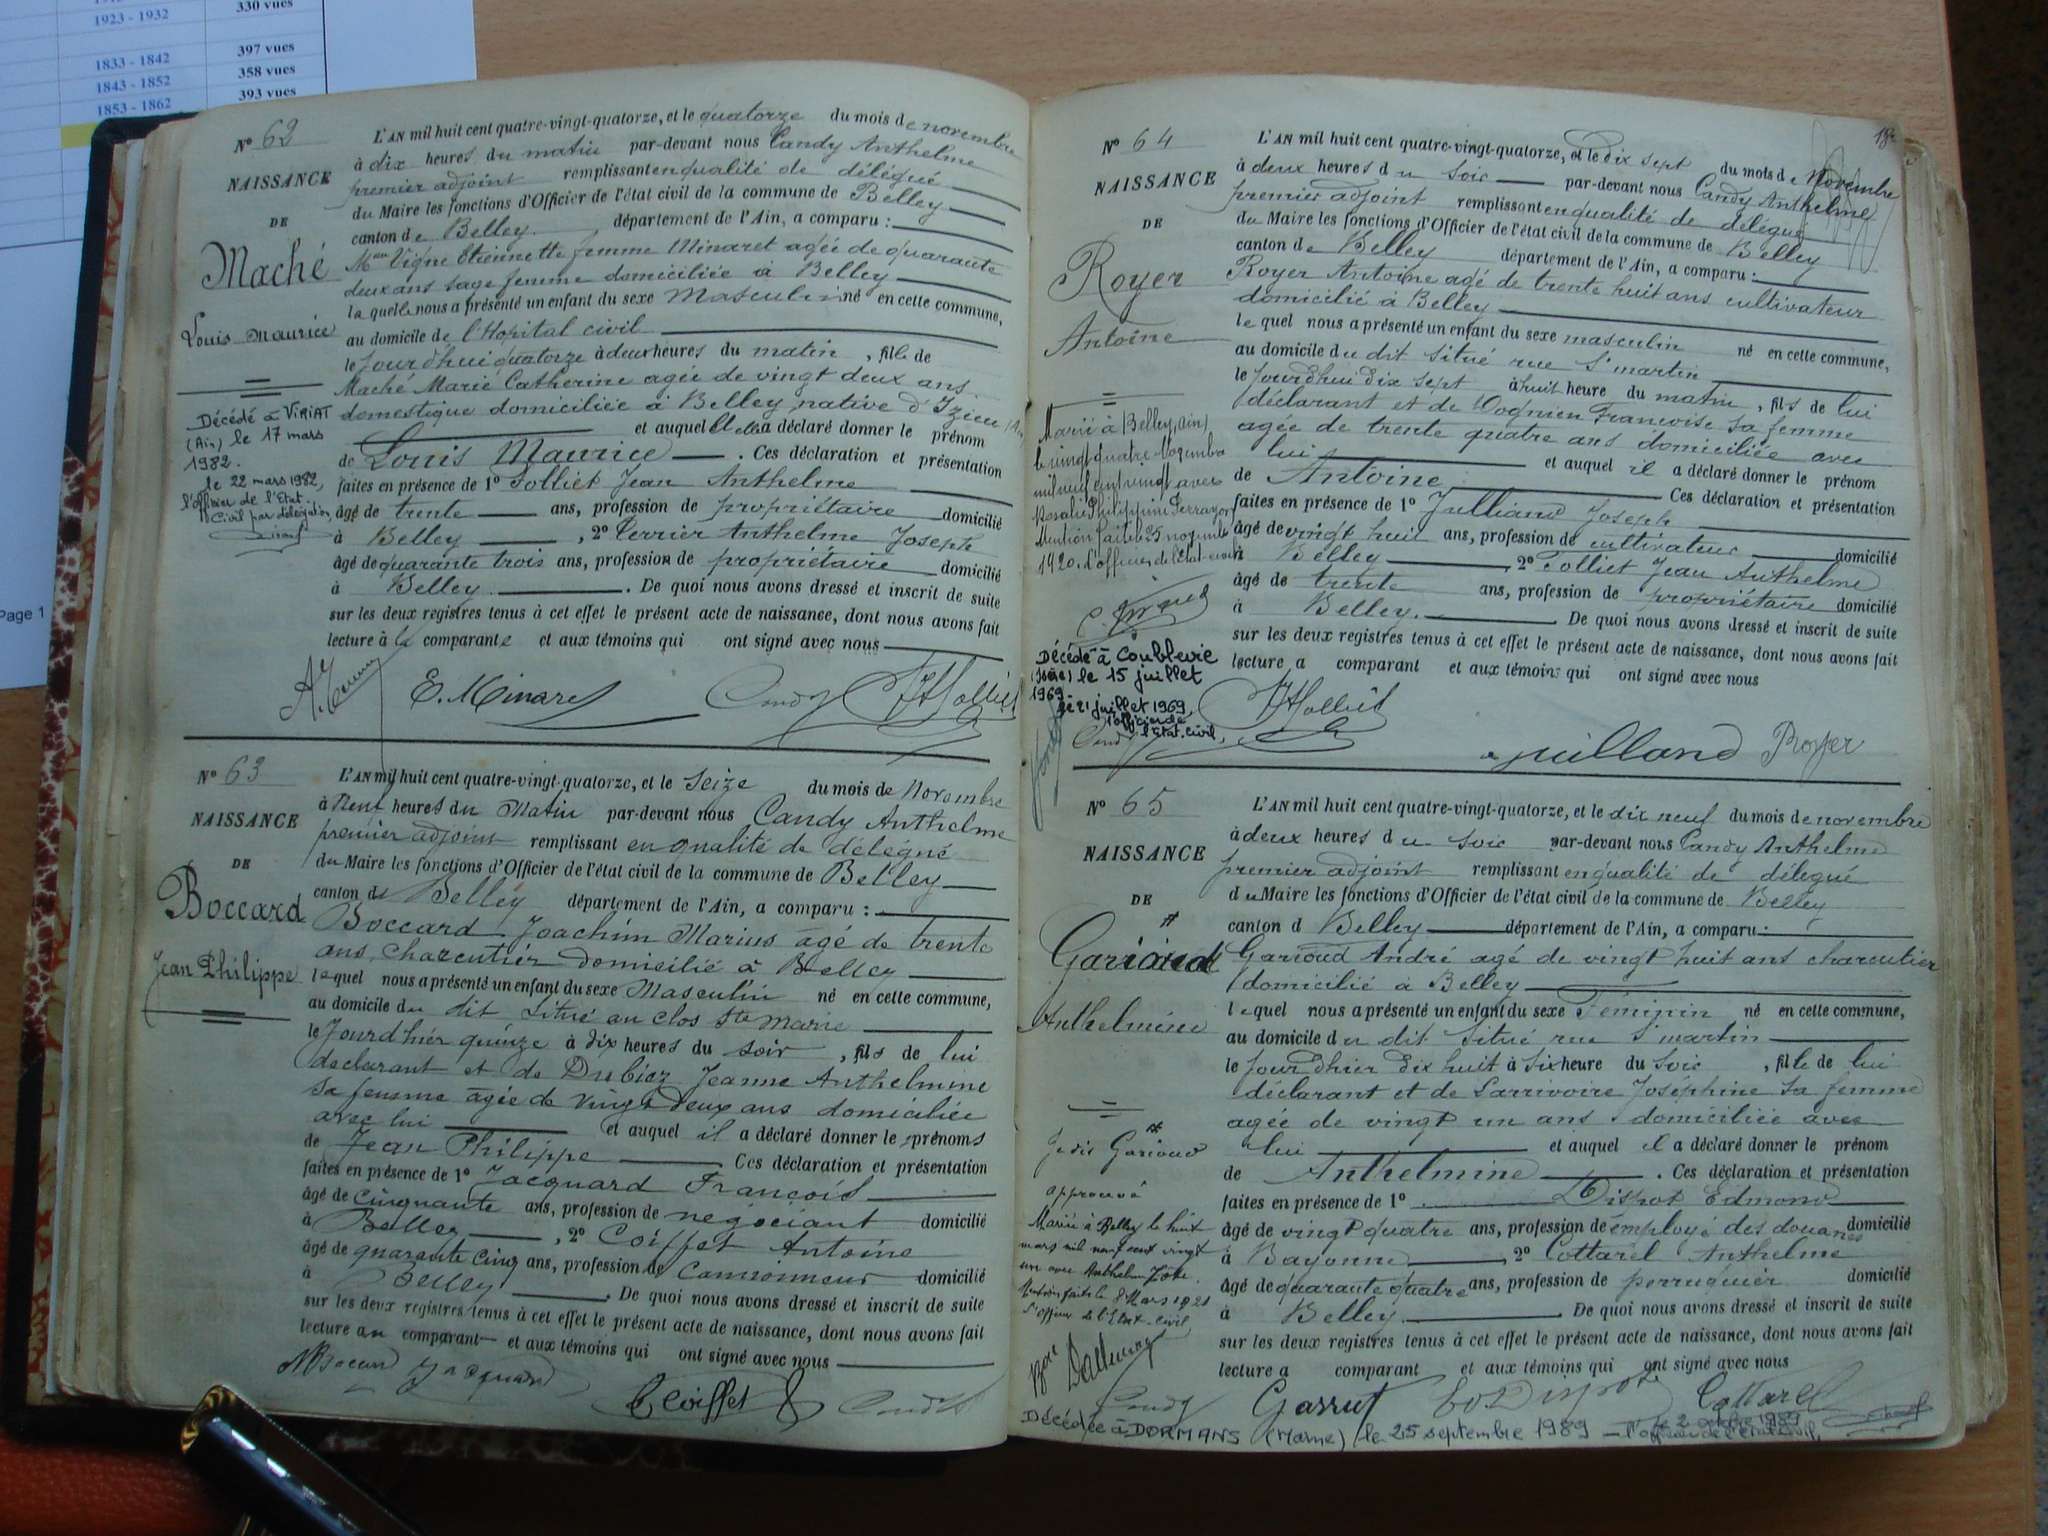 1923 - 1932 330 vues
1833 - 1842 397 vues
1843 - 1852 358 vues
1853 - 1862 393 vues
Page 1
N° 62
NAISSANCE
DE
Maché
Louis Maurice
Décédé à VIRIAT
(Ain) le 17 mars
1982.
le 22 mars 1982,
l'officier de l'Etat
Civil par délégation,
L'AN mil huit cent quatre-vingt-quatorze, et le quatorze du mois de novembre
à dix heures du matin par-devant nous Candy Anthelme
premier adjoint remplissant en qualité de délégué
du Maire les fonctions d'Officier de l'état civil de la commune de Belley
canton de Belley département de l'Ain, a comparu :
Vigne Etiennette femme Minaret agée de quarante
deux ans sage femme domiciliée à Belley
la quelle nous a présenté un enfant du sexe Masculin né en cette commune,
au domicile de l'Hopital civil
le jourd'hui quatorze à deux heures du matin, fils de
Maché Marie Catherine agée de vingt deux ans
domestique domiciliée à Belley native d'Izieu (Ain
et auquel elle a déclaré donner le prénom
de Louis Maurice. Ces déclaration et présentation
faites en présence de 1° Tolliet Jean Anthelme
âgé de trente ans, profession de propriétaire domicilié
à Belley, 2° Terrier Anthelme Joseph
âgé de quarante trois ans, profession de propriétaire domicilié
à Belley. De quoi nous avons dressé et inscrit de suite
sur les deux registres tenus à cet effet le présent acte de naissance, dont nous avons fait
lecture à la comparante et aux témoins qui ont signé avec nous
E. Minaret Candy JA Tolliet
N° 63
NAISSANCE
DE
Boccard
Jean Philippe
L'AN mil huit cent quatre-vingt-quatorze, et le seize du mois de Novembre
à Neuf heures du Matin par-devant nous Candy Anthelme
premier adjoint remplissant en qualité de délégué
du Maire les fonctions d'Officier de l'état civil de la commune de Belley
canton de Belley département de l'Ain, a comparu :
Boccard Joachim Marius agé de trente
ans, charcutier domicilié à Belley
lequel nous a présenté un enfant du sexe Masculin né en cette commune,
au domicile du dit situé au clos Ste Marie
le Jourd'hier quinze à dix heures du soir, fils de lui
declarant et de Dubiez Jeanne Anthelmine
sa femme agée de vingt deux ans domiciliée
avec lui et auquel il a déclaré donner le prénoms
de Jean Philippe. Ces déclaration et présentation
faites en présence de 1° Jacquard François
âgé de cinquante ans, profession de négociant domicilié
à Belley, 2° Coiffet Antoine
âgé de quarante cinq ans, profession de Camionneur domicilié
à Belley. De quoi nous avons dressé et inscrit de suite
sur les deux registres tenus à cet effet le présent acte de naissance, dont nous avons fait
lecture au comparant et aux témoins qui ont signé avec nous
Jacquard Coiffet Candy
N° 64
NAISSANCE
DE
Royer
Antoine
Marié à Belley (Ain)
le vingt quatre Novembre
mil neuf cent vingt avec
Rosalie Philippine Ferrayon
Mention faite le 25 novembre
1920. L'officier de l'état civil
Décédé à Coublevie
(Isère) le 15 juillet
1969
le 21 juillet 1969,
l'officier de
l'Etat.civil,
L'AN mil huit cent quatre-vingt-quatorze, et le dix sept du mois de Novembre
à deux heures du soir par-devant nous Candy Anthelme
premier adjoint remplissant en qualité de délégué
du Maire les fonctions d'Officier de l'état civil de la commune de Belley
canton de Belley département de l'Ain, a comparu :
Royer Antoine agé de trente huit ans cultivateur
domicilié à Belley
le quel nous a présenté un enfant du sexe masculin né en cette commune,
au domicile du dit situé rue St martin
le jourd'hui dix sept à huit heure du matin, fils de lui
déclarant et de Dognien Françoise sa femme
agée de trente quatre ans domiciliée avec
lui et auquel il a déclaré donner le prénom
de Antoine Ces déclaration et présentation
faites en présence de 1° Julliand Joseph
âgé de vingt huit ans, profession de cultivateur domicilié
à Belley, 2° Tolliet Jean Anthelme
âgé de trente ans, profession de propriétaire domicilié
à Belley. De quoi nous avons dressé et inscrit de suite
sur les deux registres tenus à cet effet le présent acte de naissance, dont nous avons fait
lecture a comparant et aux témoins qui ont signé avec nous
JA Tolliet
Candy Julliand Royer
N° 65
NAISSANCE
DE
Garioud
Anthelmine
Je dis Garioud
approuvé
Mariée à Belley le huit
mars mil neuf cent vingt
un avec Anthelme
Mention faite le 8 Mars 1921
L'Officier de l'Etat-civil
L'AN mil huit cent quatre-vingt-quatorze, et le dix neuf du mois de novembre
à deux heures du soir par-devant nous Candy Anthelme
premier adjoint remplissant en qualité de délégué
du Maire les fonctions d'Officier de l'état civil de la commune de Belley
canton d Belley département de l'Ain, a comparu :
Garioud André agé de vingt huit ans charcutier
domicilié à Belley
lequel nous a présenté un enfant du sexe Féminin né en cette commune,
au domicile du dit situé rue St martin
le jourd'hier dix huit à six heure du soir, fille de lui
déclarant et de Larrivoire Joséphine sa femme
agée de vingt un ans domiciliée avec
lui et auquel il a déclaré donner le prénom
de Anthelmine. Ces déclaration et présentation
faites en présence de 1° Dispot Edmond
âgé de vingt quatre ans, profession de employé des douanes domicilié
à Bayonne, 2° Cottarel Anthelme
âgé de quarante quatre ans, profession de perruquier domicilié
à Belley. De quoi nous avons dressé et inscrit de suite
sur les deux registres tenus à cet effet le présent acte de naissance, dont nous avons fait
lecture a comparant et aux témoins qui ont signé avec nous
Candy Dispot Cottarel
Décédée à DORMANS (Marne) le 25 septembre 1989
l'officier de l'Etat Civil,